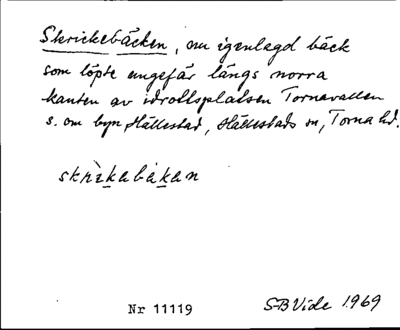 Skrickebäcken, nu igenlagd bäck
som löpte ungefär längs norra
kanten av idrottsplatsen Tornavallen
s. om byn Hällestad, Hällestads sn, Torna hd.
skrìkabäkan
Nr 11119 S-B Vide 1969